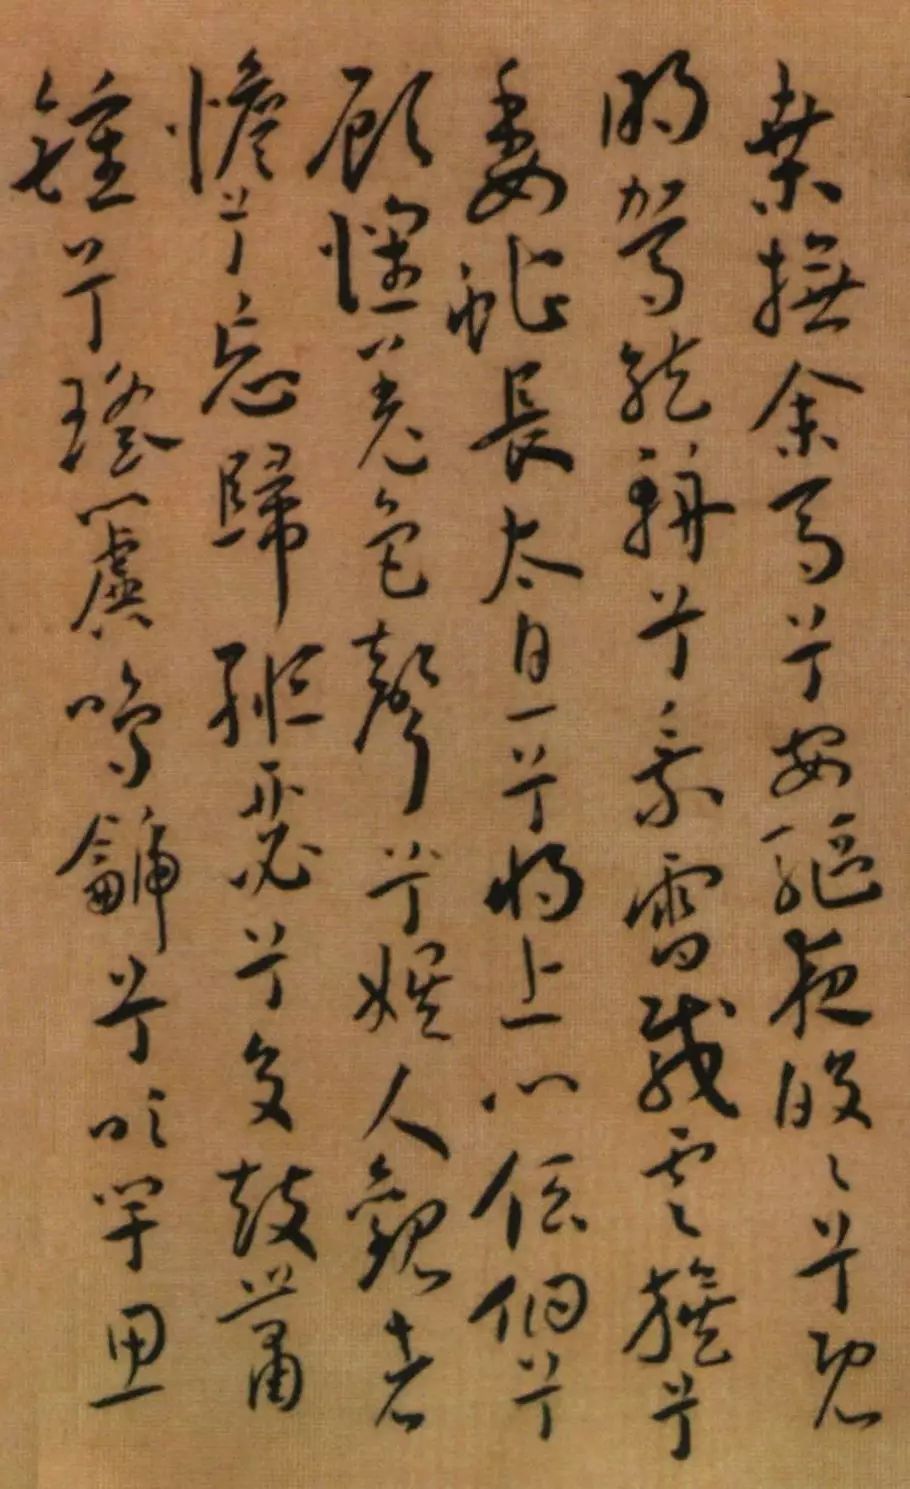 桑撫余馬兮安驅夜皎〻兮既
明駕龍輈兮乘雷載雲旗兮
委蛇長太息兮將上心低佪兮
顧懷羌色聲兮娛人觀者
憺兮忘歸緪瑟兮交鼓簫
鍾兮瑤簴鳴䶵兮吹竽思